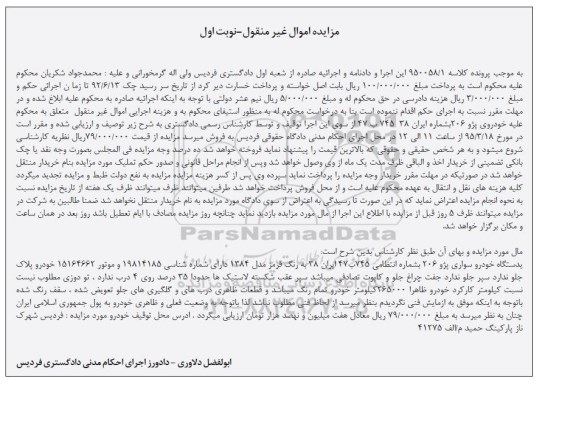 مزایده اموال غیر منقول-نوبت اول
به موجب پرونده کلاسه ۹۵۰۰۵۸/۱ این اجرا و دادنامه و اجرائیه صادره از شعبه اول دادگستری فردیس ولی اله گرمخورانی و علیه : محمدجواد شکریان محکوم
علیه محکوم است به پرداخت مبلغ ۱۰۰/۰۰۰/۰۰۰ ریال بابت اصل خواسته و پرداخت خسارت دیر کرد از تاریخ سر رسید چک ۹۲/۶/۱۳ تا زما ن اجرائی حکم و
مبلغ ۳/۰۰۰/۰۰۰ ریال هزینه دادرسی در حق محکوم له و مبلغ ۵/۰۰۰/۰۰۰ ریال نیم عشر دولتی با توجه به اینکه اجرائیه صادره به محکوم علیه ابلاغ شده و در
مهلت مقرر نسبت به اجرای حکم اقدام ننموده است بنا به درخواست محکوم له به منظور استیفای محکوم به و هزینه اجرایی اموال غیر منقول متعلق به محکوم
علیه خودروی پژو ۲۰۶بشماره ایران ۳۸ ۷۴۵ب۴۷ از سوی این اجرا توقیف و توسط کارشناس رسمی دادگستری به شرح زیر توصیف و ارزیابی شده و مقرر است
در مورخ ۹۵/۳/۱۸ از ساعت ۱۱ الی ۱۲ در محل اجرای احکام مدنی دادگاه حقوقی فردیس به فروش میرسد مزایده از قیمت ۷۹/۰۰۰/۰۰۰ریال نظریه کارشناسی
شروع میشود و به هر شخص حقیقی و حقوقی که بالاترین قیمت را پیشنهاد نماید فروخته خواهد شد ده درصد وجه مزایده فی المجلس بصورت وجه نقد یا چک
بانکی تضمینی از خریدار اخذ و الباقی ظرف مدت یک ماه از وی وصول خواهد شد وپس از انجام مراحل قانونی و صدور حکم تملیک مورد مزایده بنام خریدار منتقل
خواهد شد در صورتیکه در مهلت مقرر خریدار وجه مزایده را پرداخت ننماید سپرده وی پس از کسر هزینه مزایده مزایده به نفع دولت ظبط و مزایده تجدید میگردد
کلیه هزینه های نقل و انتقال به عهده محکوم علیه است و از محل فروش پرداخت خواهد شد طرفین میتوانند ظرف یک هفته از تاریخ مزایده نسبت
به نحوه انجام مزایده اعتراض نماید که در این صورت تا رسیدگی به اعتراض از سوی دادگاه مورد مزایده به نام خریدار منتقل نخواهد شد ضمنا طالبین به شرکت در
مزایده میتوانند ظرف ۵ روز قبل از مزایده با اطلاع این اجرا از مال مورد مزایده بازدید نماید چنانچه روز مزایده مصادف با ایام تعطیل باشد روز بعد در همان ساعت
و مکان برگزار خواهد شد.
مال مورد مزایده و بهای آن طبق نظر کارشناس بدین شرح است:
یدستگاه خودرو سواری پژو ۲۰۶ بشماره انتظامی ۷۴۵ب۴۷ ایران ۳۸ به رنگ قرمز مدل ۱۳۸۴ دارای شماره شناسی ۱۹۸۱۴۱۸۵ و موتور ۱۵۱۶۴۶۶۲ خودرو پلاک
جلو ندارد سپر جلو ندارد جفت چراغ جلو و کاپوت تصادفی میباشد سپر عقب شکسته لاستیک ها حدودا ۳۵ درصد روی ۴ درب ندارد ، تو دوزی مطلوب نیست
نسبت کیلومتر کارکرد خودرو ظاهرا ۲۶۵۰۰۰کیلومتر خودرو تمام رنگ میباشد و قطعات ظاهری درب های و گلگیری های جلو تعویض شده ، سقف رنگ شده
باتوجه به اینکه موفق به ازمایش فنی نگردیدم بنظر میرسد از لحاظ فنی مطلوب نباشد لذا باتوجه به وضعیت فعلی و ظاهری خودرو به پول جمهوری اسلامی ایران
چنان به نظر میرسد به مبلغ ۷۹/۰۰۰/۰۰۰ ریال معادل هفت میلیون و نهصد هزار تومان ارزیابی میگردد . ادرس محل توقیف خودرو مورد مزایده : فردیس شهرک
ناز پارکینگ حمید م/الف ۴۱۲۷۵
ابولفضل دلاوری - دادورز اجرای احکام مدنی دادگستری فردیس
ParsNamadData